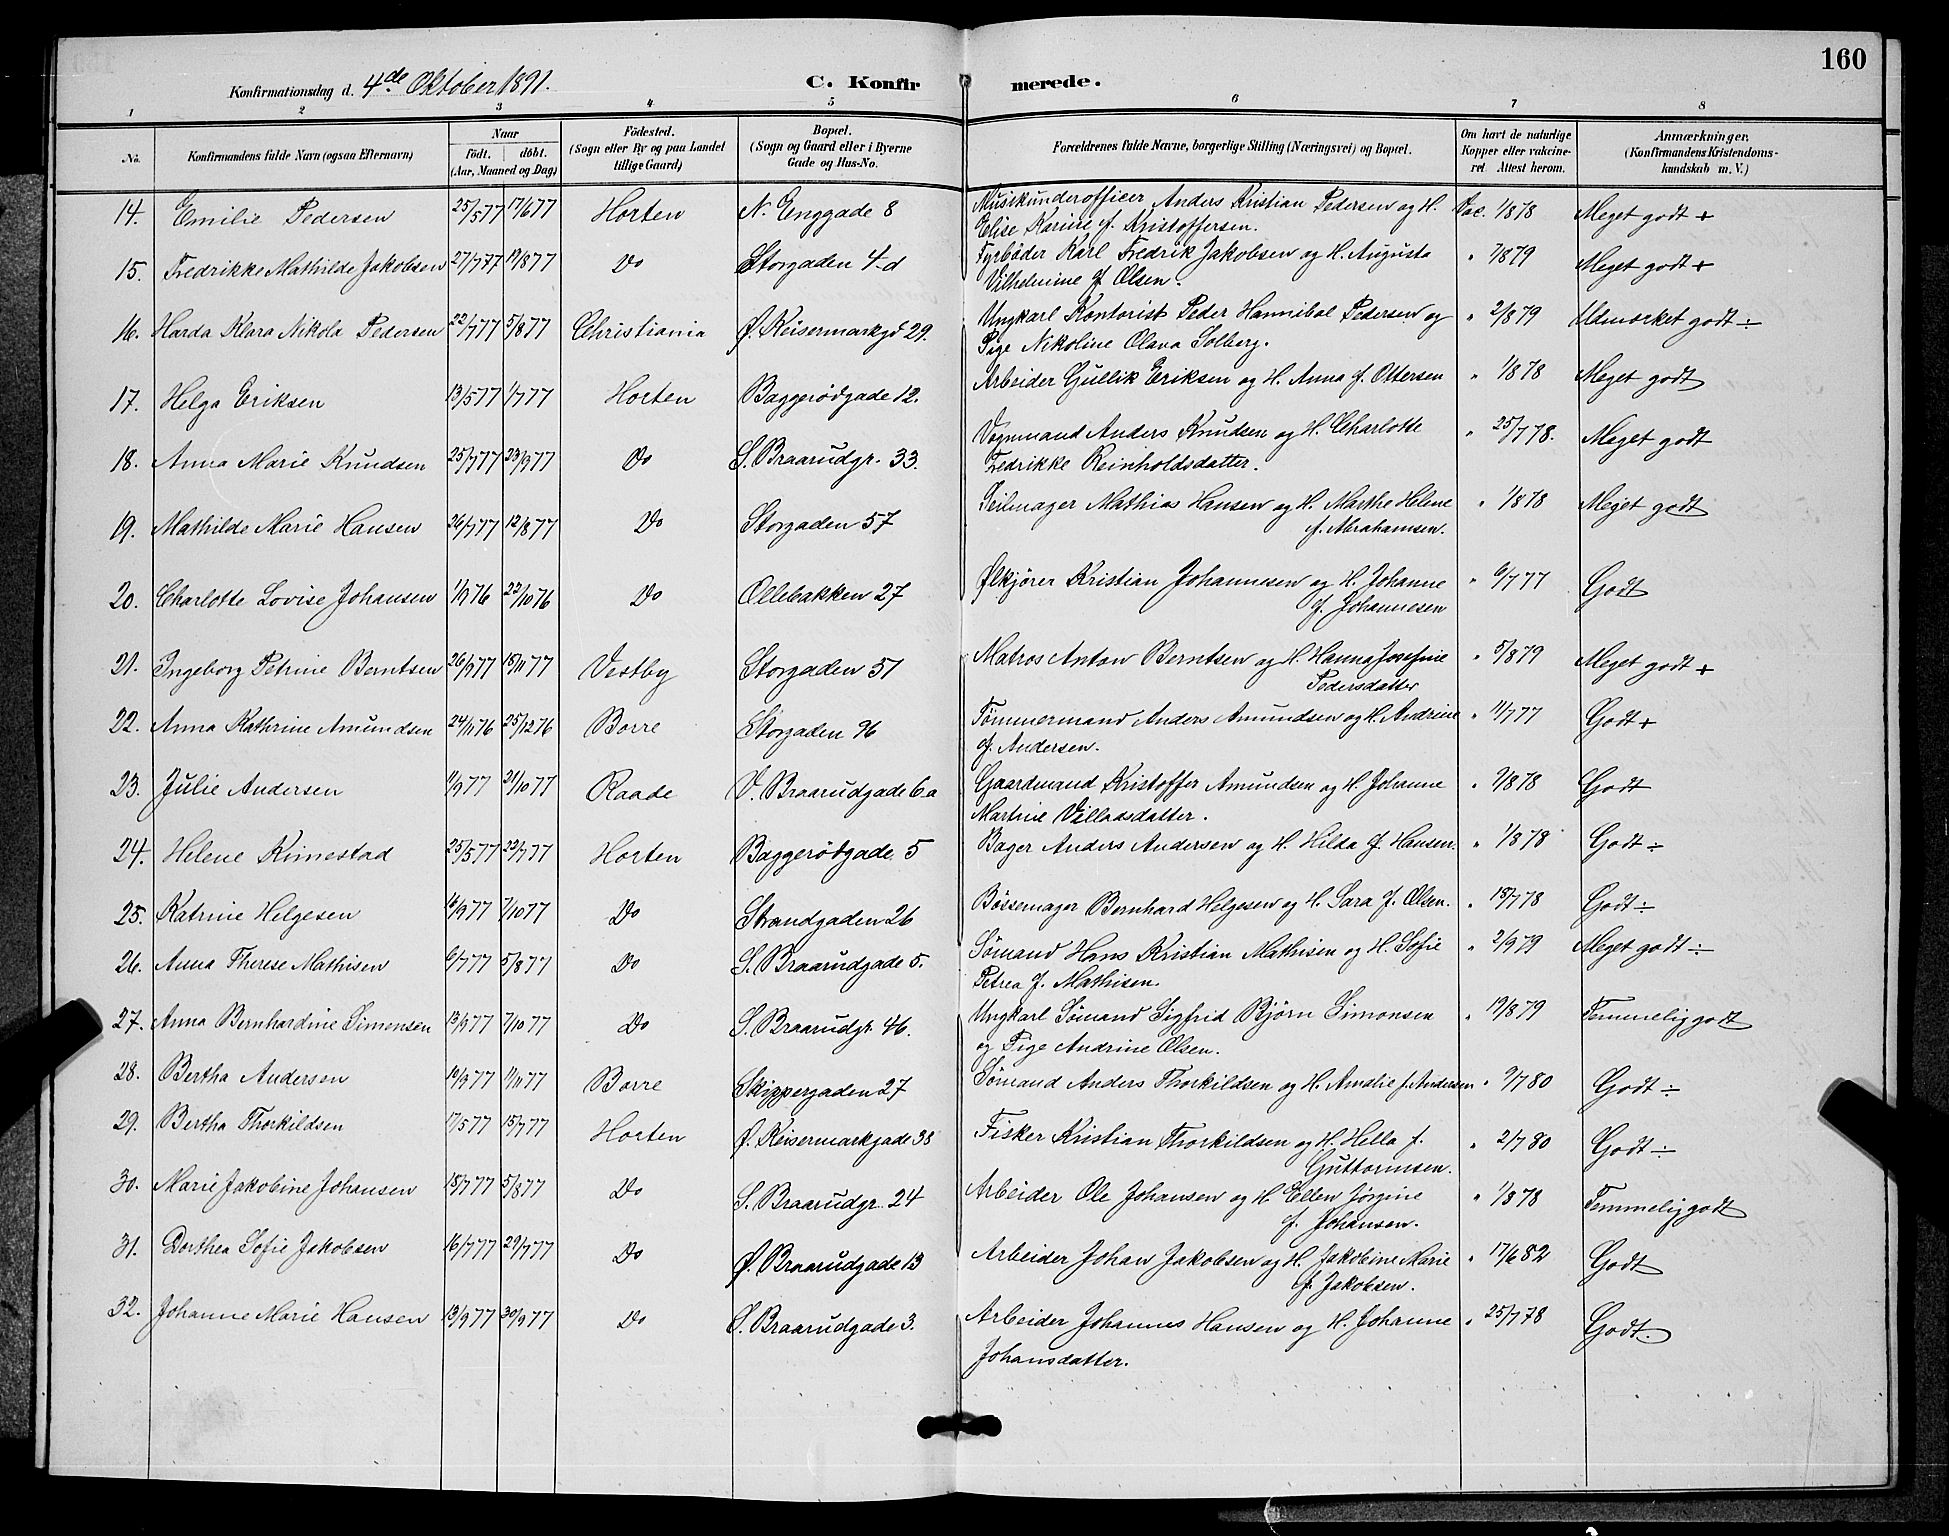 160
Konfirmationsdag d. 4de Oktober 1891. C. Konfirmerede.
1 2 3 4 5 6 7 8
No. Konfirmandens fulde Navn (ogsaa Efternavn) Naar født. døbt. (Aar, Maaned og Dag) Fødested. (Sogn eller By og paa Landet tillige Gaard) Bopæl. (Sogn og Gaard eller i Byerne Gade og Hus-No. Forældrenes fulde Navne, borgerlige Stilling (Næringsvei) og Bopæl. Om havt de naturlige Kopper eller vakcineret. Attest herom. Anmærkninger. (Konfirmandens Kristendomskundskab m. V.)
14. Emilie Pedersen 25/5 77 17/6 77 Horten N. Enggade 8 Musikunderofficer Anders Kristian Pedersen og H. Vac. 1/8 78 Meget godt +
Elise Karine f. Kristoffersen.
15. Fredrikke Mathilde Jakobsen 27/7 77 19/8 77 Do Storgaden 4 d Fyrbøder Karl Fredrik Jakobsen og H. Augusta " 7/8 79 Meget godt +
Vilhelmine f. Olsen.
16. Harda Klara Nikola Pedersen 22/7 77 5/8 77 Christiania Ø. Keisermarkgd 29. Ungkarl Kontorist Peder Hannibal Pedersen og " 2/8 79 Udmærket godt ÷
Pige Nikoline Olava Solberg.
17. Helga Eriksen 13/5 77 1/7 77 Horten Baggerødgade 12. Arbeider Gullik Eriksen og H. Anna f. Ottersen " 1/8 78 Meget godt
18. Anna Marie Knudsen 25/7 77 23/9 77 Do S. Braarudgr. 33. Vognmand Anders Knudsen og H. Charlotte " 25/7 78. Meget godt
Fredrikke Reinholdsdatter.
19. Mathilde Marie Hansen 26/7 77 12/8 77 Do Storgaden 57 Seilmager Mathias Hansen og H. Marthe Helene " 1/8 78 Meget godt
f. Abrahamsen.
20. Charlotte Lovise Johansen 1/9 76 22/10 76 Do Ollebakken 27 Ølkjører Kristian Johannesen og H. Johanne " 6/7 77 Godt
f. Johannesen
21. Ingeborg Petrine Berntsen 26/9 77 18/11 77 Vestby Storgaden 51 Matros Anton Berntsen og H. Hanna Josefine " 5/8 79 Meget godt +
Pedersdatter
22. Anna Kathrine Amundsen 24/11 76 25/12 76 Borre Storgaden 96 Tømmermand Anders Amundsen og H. Andrine " 11/7 77 Godt +
f. Andersen.
23. Julie Andersen 11/9 77 21/10 77 Raade V. Braarudgade 6 a Gaardmand Kristoffer Amundsen og H. Johanne " 9/8 78 Godt
Martine Villaasdatter.
24. Helene Rimestad 25/5 77 22/7 77 Horten Baggerødgade 5 Bager Anders Andersen og H. Hilda f. Hansen. " 1/8 78 Godt ÷
25. Katrine Helgesen 16/9 77 7/10 77 Do Strandgaden 26 Bøssemager Bernhard Helgesen og H. Sara f. Olsen. " 18/7 78 Godt ÷
26. Anna Therese Mathisen 6/7 77 5/8 77 Do S. Braarudgade 5. Sømand Hans Kristian Mathisen og H. Sofie " 2/9 79 Meget godt ÷
Petrea f. Mathisen.
27. Anna Bernhardine Simonsen 13/9 77 7/10 77 Do S. Braarudgr. 46. Ungkarl Sømand Sigfrid Bjørn Simonsen " 19/8 79 Temmelig godt
og Pige Andrine Olsen.
28. Bertha Andersen 10/9 77 11/11 77 Borre Skippergaden 27 Sømand Anders Thorkildsen og H. Amalie f. Andersen " 9/7 80 Godt ÷
29. Bertha Thorkildsen 17/5 77 15/7 77 Horten Ø. Keisermarkgade 38 Fisker Kristian Thorkildsen og H. Hella f. " 2/7 80 Godt ÷
Guttormsen.
30. Marie Jakobine Johansen 18/7 77 5/8 77 Do S. Braarudgr. 24 Arbeider Ole Johansen og H. Ellen Jørgine " 1/8 78 Temmelig godt
f. Johansen.
31. Dorthea Sofie Jakobsen 16/7 77 29/7 77 Do Ø. Braarudgade 13 Arbeider Johan Jakobsen og H. Jakobine Marie " 17/6 82 Godt
f. Jakobsen.
32. Johanne Marie Hansen 13/9 77 30/9 77 Do Ø. Braarudgade 3. Arbeider Johannes Hansen og H. Johanne " 25/7 78 Godt.
Johansdatter.